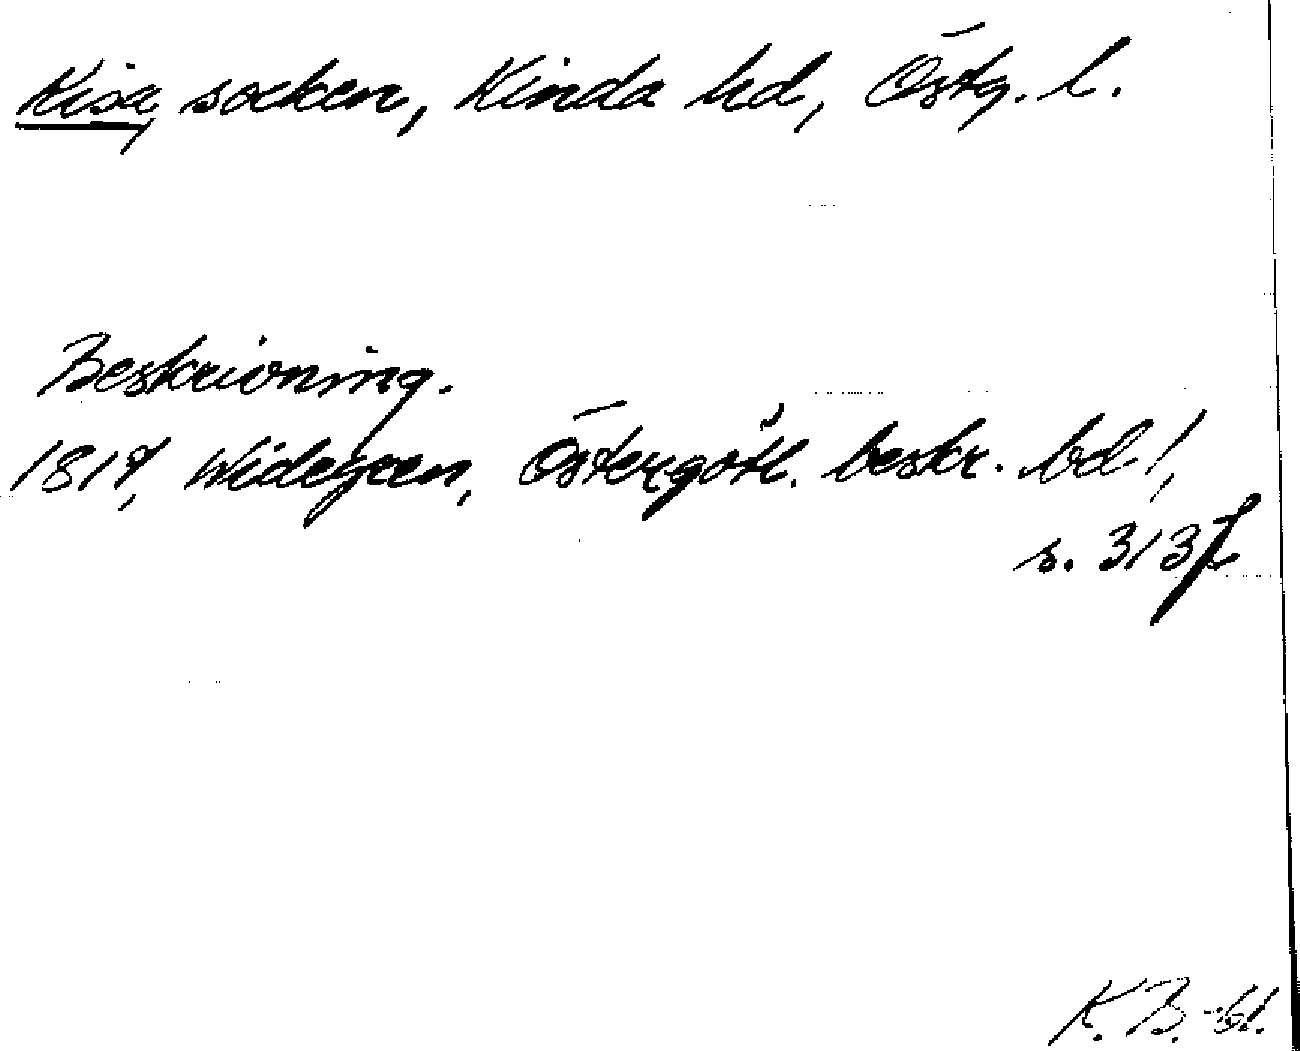 Kisa socken, Kinda hd, Östg. l.
Beskrivning.
1817, Widegren, Östergötl. beskr. bd 1,
s. 313f
K.B.-61.